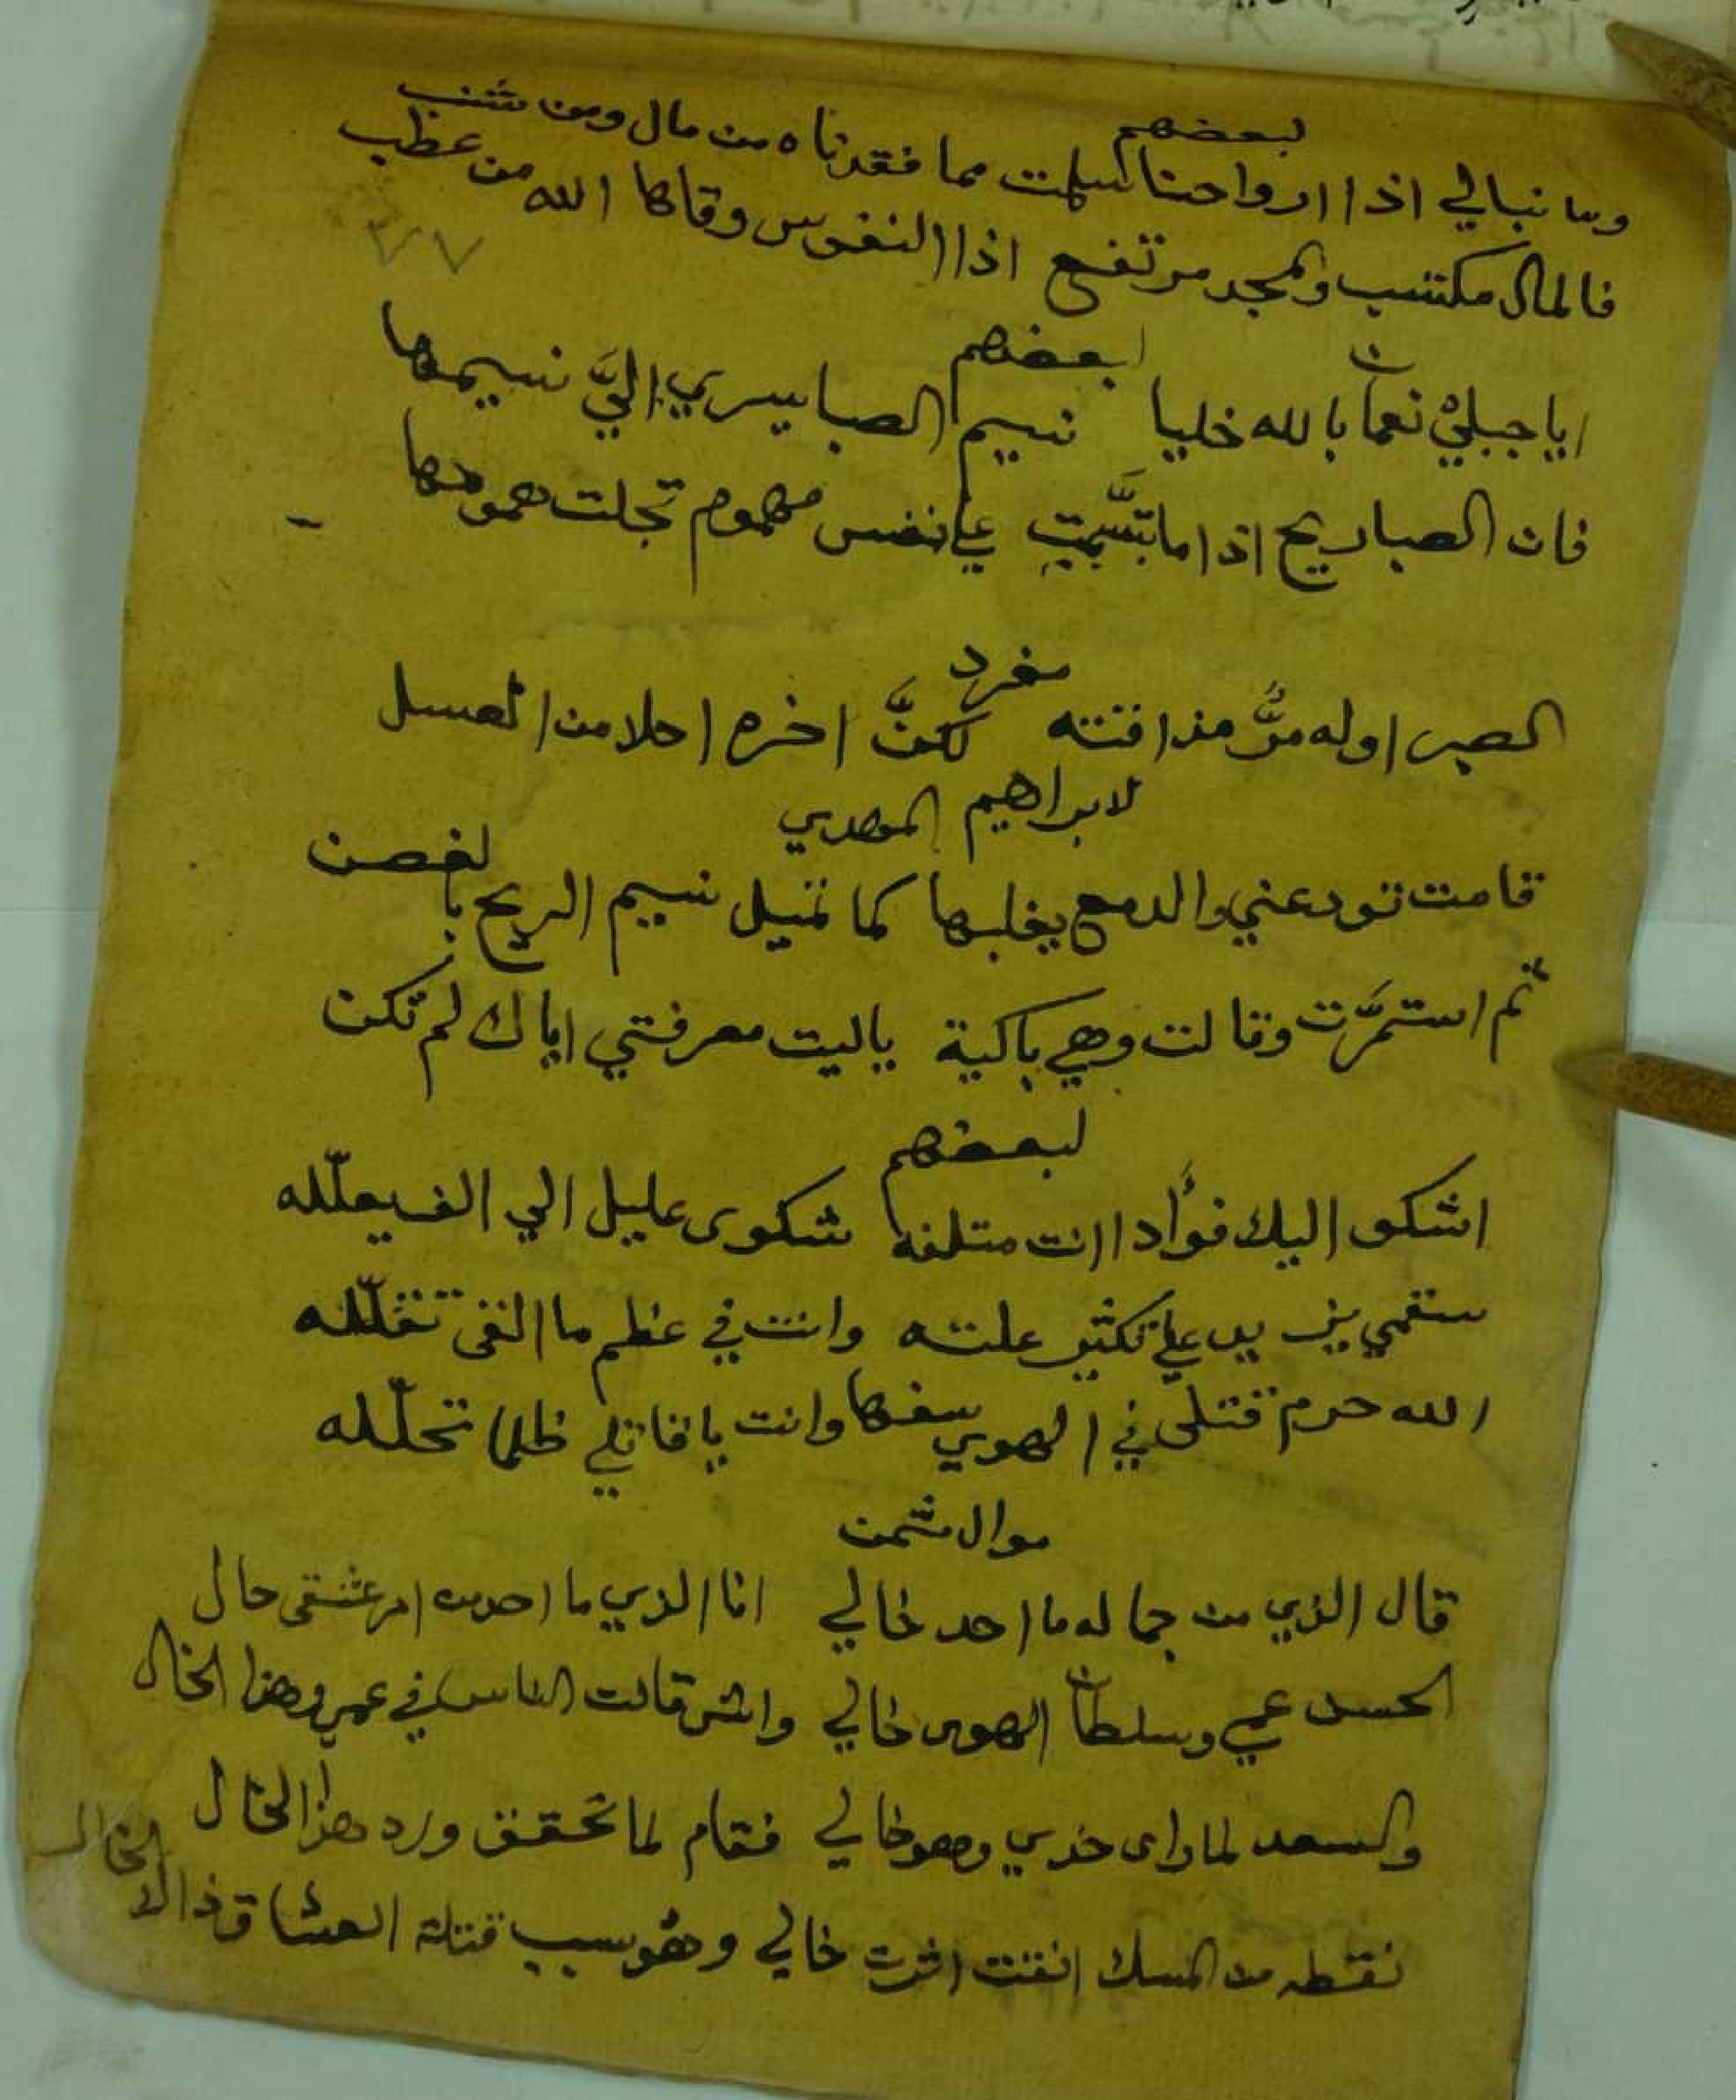 لبعضهم
وما نبالي اذا ارواحنا سلمت مما فقدناه من مال ومن نشب
فالمال مكتسب والمجد مرتفع اذا النفوس وقاها الله من عطب
٢٠٧
لبعضهم
ايا جبلي نعمان بالله خليا نسيم الصبا يسري اليَّ نسيمها
فان الصبا ريح اذا ما تنسَّمت على نفس مهموم تجلت همومها
مفرد
الصبر اوله مرٌّ مذاقته لكنَّ اخره احلا من العسل
لابراهيم المهدي
قامت تودعني والدمع يغلبها كما تميل نسيم الريح بالغصن
ثم استمرَّت وقالت وهي باكية ياليت معرفتي اياك لم تكن
لبعضهم
اشكو اليك فؤادا انت متلفه شكوى عليل الي الف يعلّله
سقمي يزيد علي تكثير علته وانت في عظم ما القى تقلّله
الله حرم قتلى في الهوي سفها وانت يا قاتلي ظلما تحلّله
موال مثمن
قال الذي من جماله ما احد خالي انا الذي ما احد من امر عشقي خال
الحسن عمي وسلطان الهوى خالي واش قالت الناس في عمي وهذا الخال
والسعد لما راى خدي وهو خالي فقام لما تحقق ورد هذا الخال
نقطه من المسك اثرت خالي وهو سبب قتلة العشاق ذاك الخال